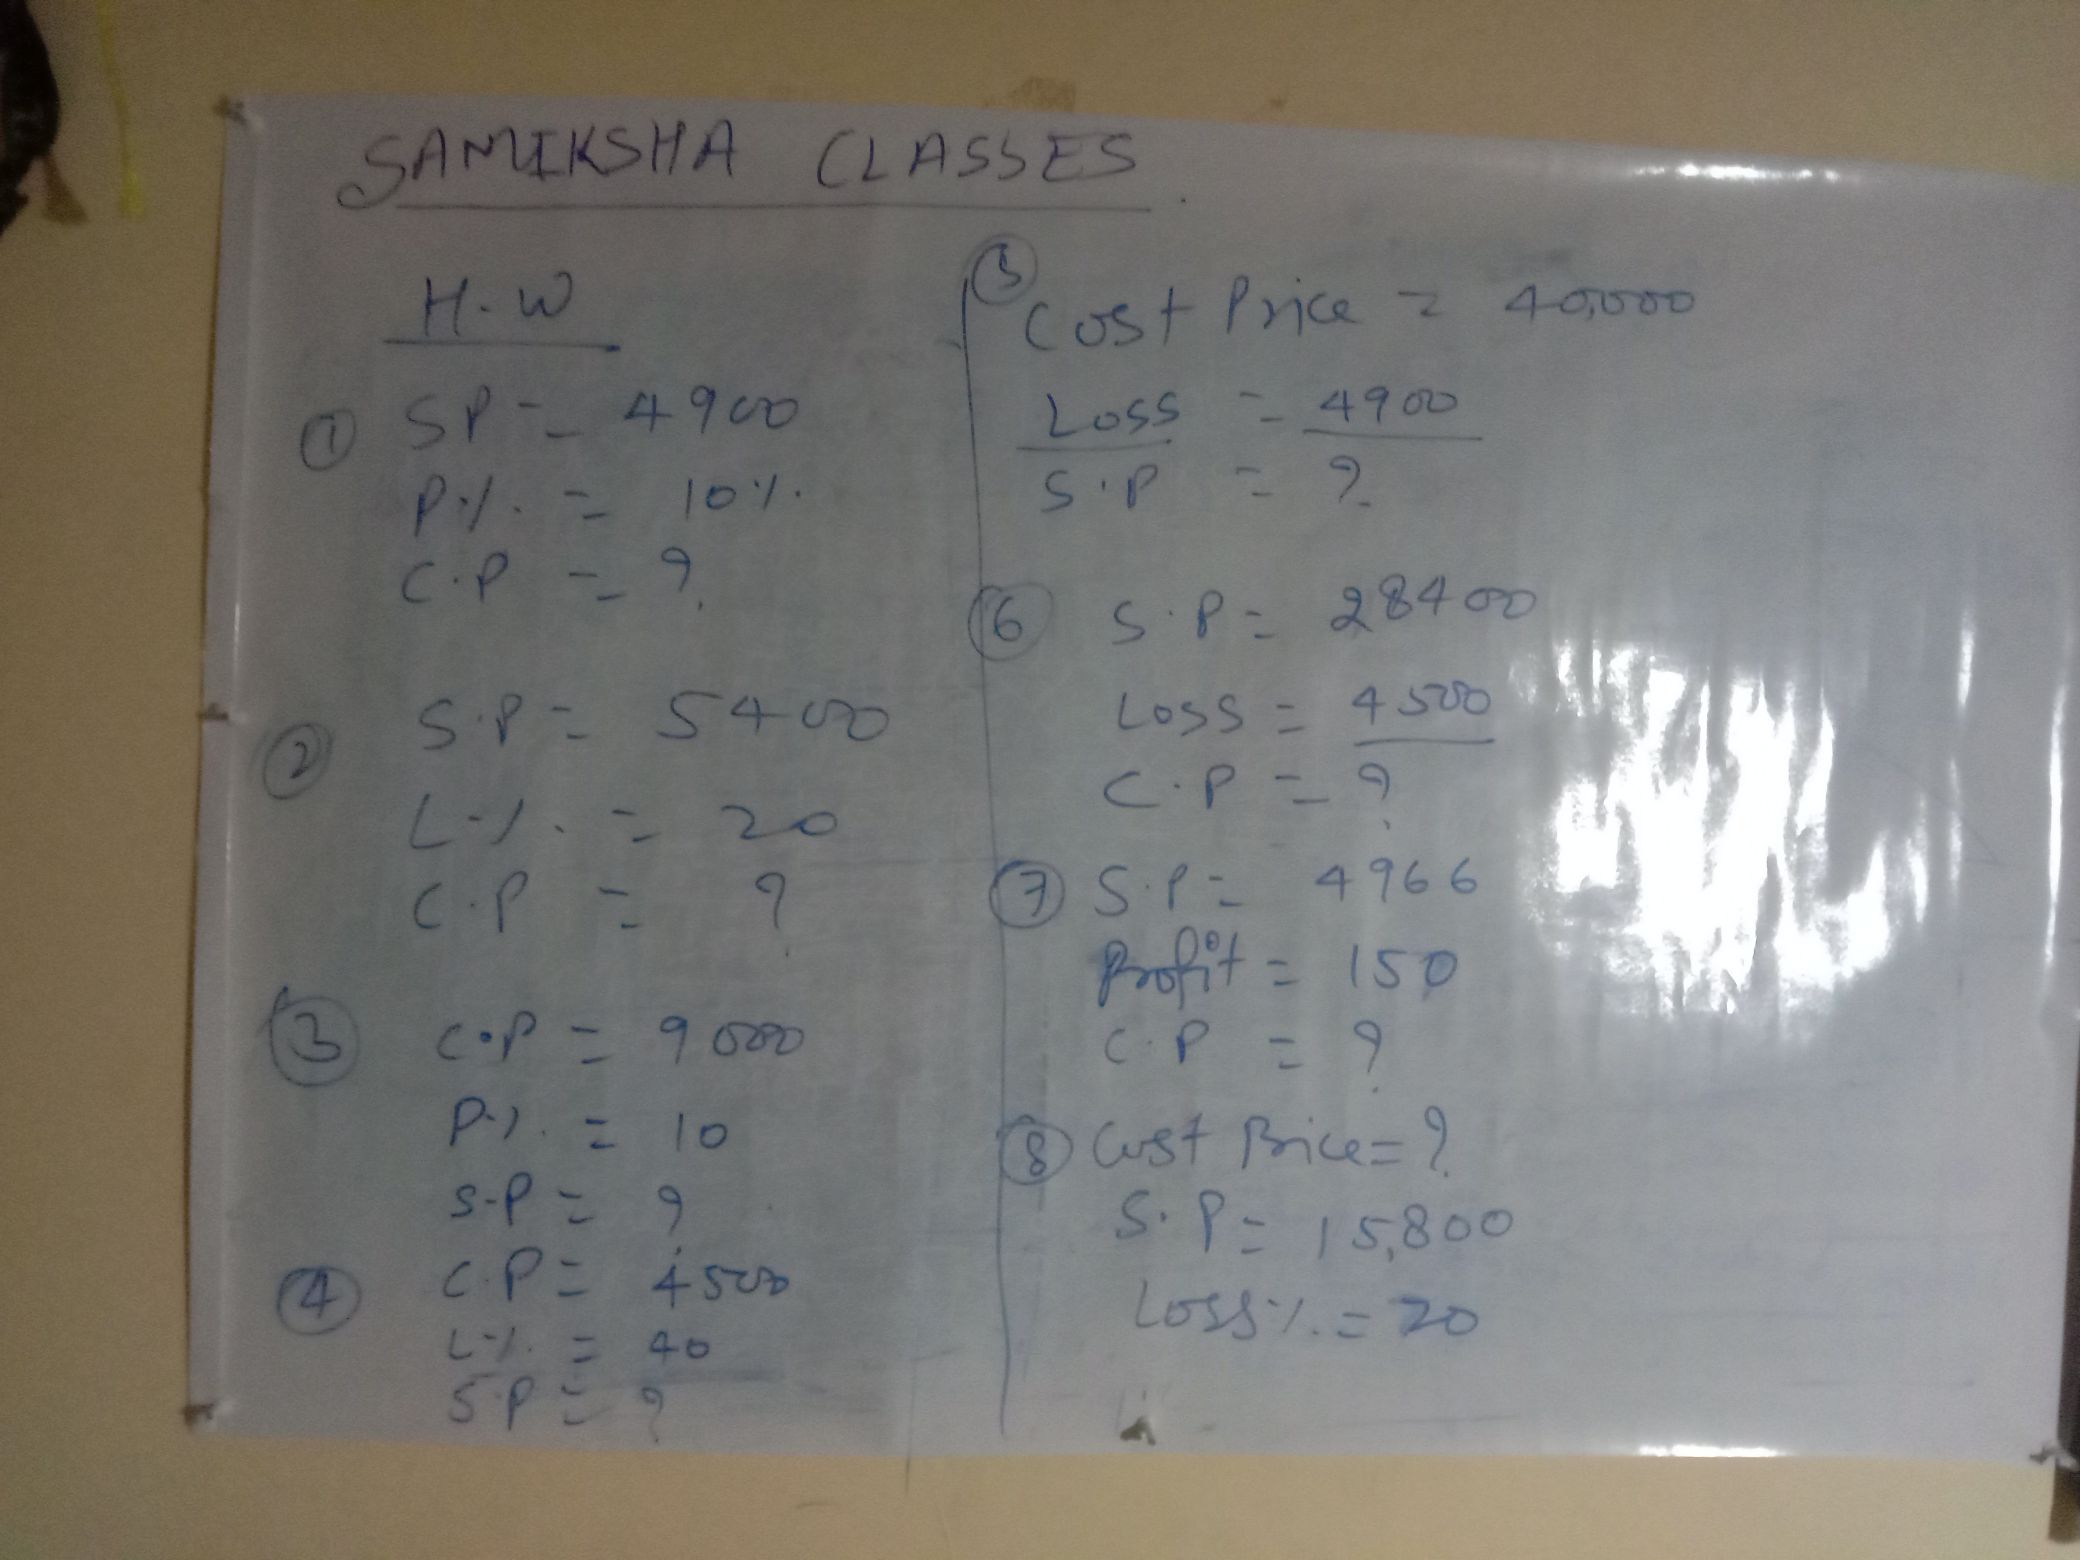 SAMIKSHA CLASSES
H.W
① SP = 4900
P.%. = 10%.
C.P = ?
② S.P = 5400
L.%. = 20
C.P = ?
③ C.P = 9000
P.%. = 10
S.P = ?
④ C.P = 4500
L.%. = 40
S.P = ?
⑤ Cost Price = 40,000
Loss = 4900
S.P = ?
⑥ S.P = 28400
Loss = 4500
C.P = ?
⑦ S.P = 4966
Profit = 150
C.P = ?
⑧ Cost Price = ?
S.P = 15,800
Loss %. = 20